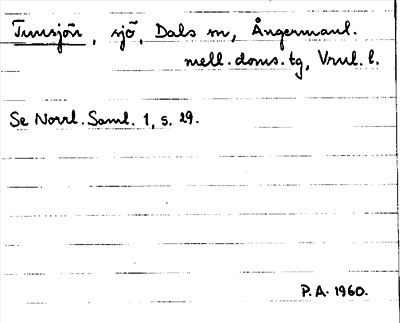 Tunsjön, sjö, Dals sn, Ångermanl.
mell. doms. tg, Vnul. l.
Se Norrl. Saml. 1, s. 29.
P.A. 1960.